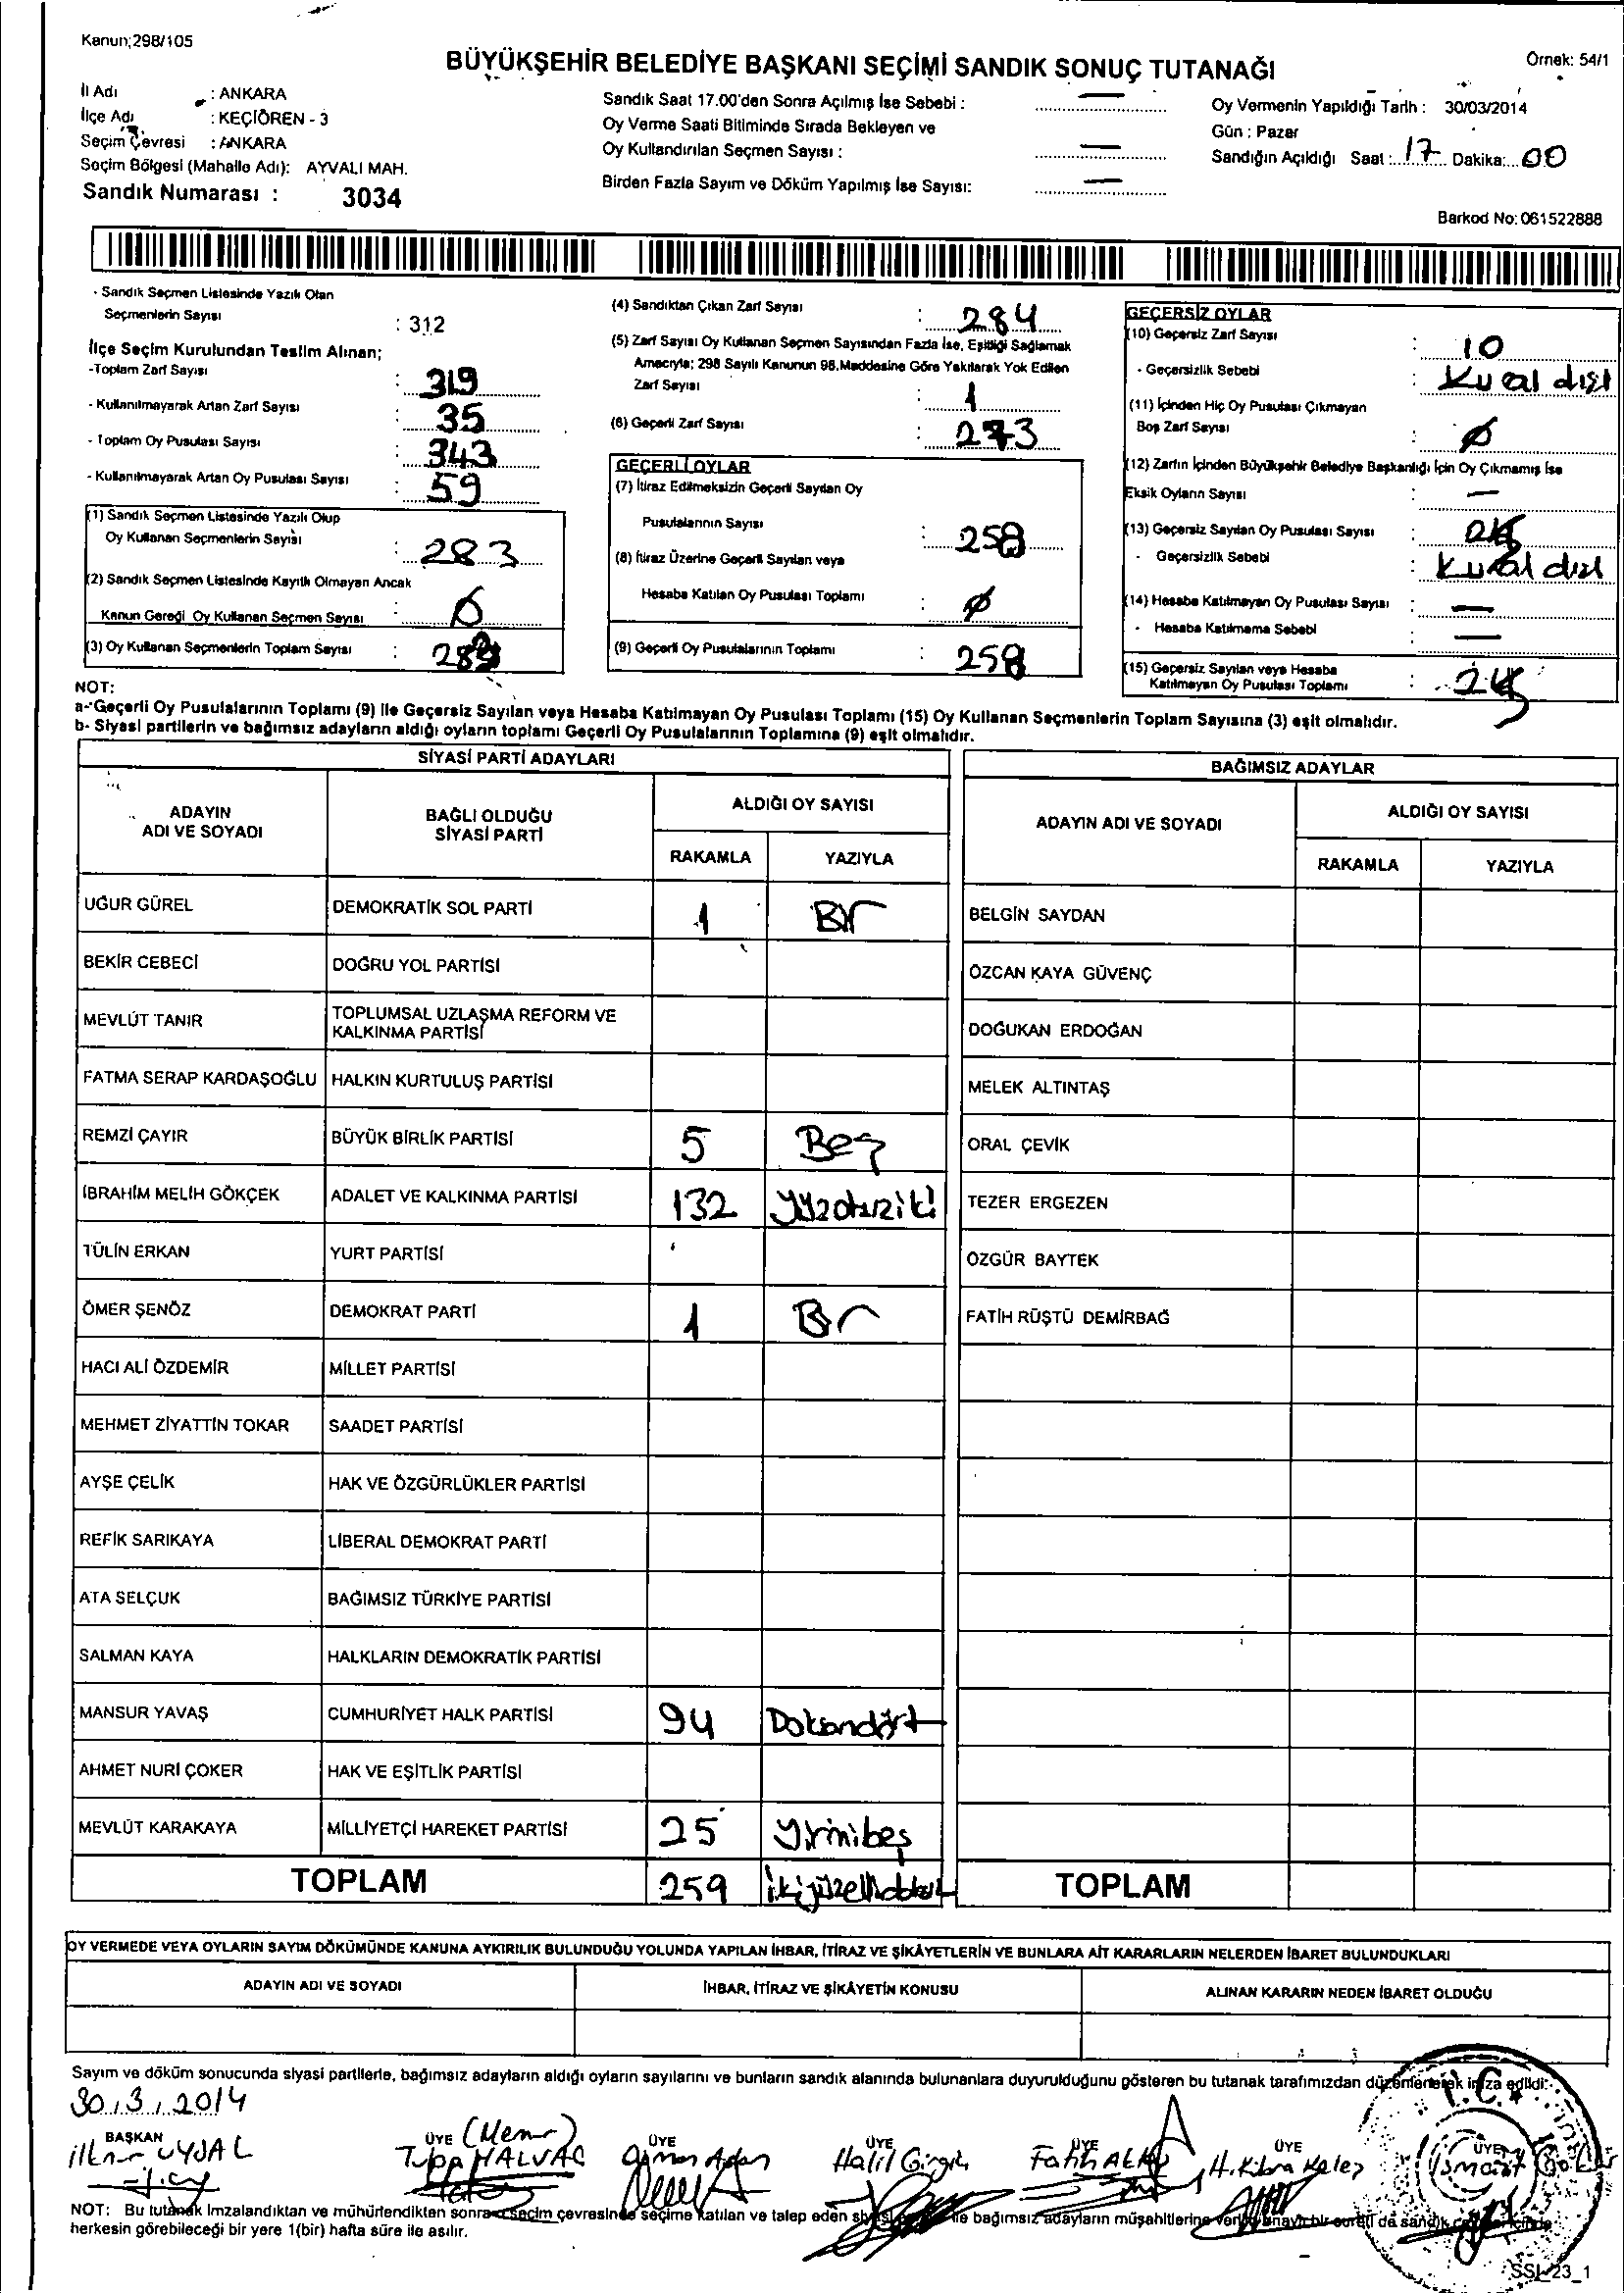 Kanun;298/105
Örnek: 54/1
BÜYÜKŞEHİR BELEDİYE BAŞKANI SEÇİMİ SANDIK SONUÇ TUTANAĞI
İl Adı : ANKARA
İlçe Adı : KEÇİÖREN - 3
Seçim Çevresi : ANKARA
Seçim Bölgesi (Mahalle Adı): AYVALI MAH.
Sandık Numarası : 3034
Sandık Saat 17.00'den Sonra Açılmış İse Sebebi : —
Oy Verme Saati Bitiminde Sırada Bekleyen ve
Oy Kullandırılan Seçmen Sayısı : —
Birden Fazla Sayım ve Döküm Yapılmış İse Sayısı: —
Oy Vermenin Yapıldığı Tarih : 30/03/2014
Gün : Pazar
Sandığın Açıldığı Saat : 17 Dakika: 00
Barkod No: 061522888
- Sandık Seçmen Listesinde Yazılı Olan
Seçmenlerin Sayısı : 312
İlçe Seçim Kurulundan Teslim Alınan;
-Toplam Zarf Sayısı : 319
- Kullanılmayarak Artan Zarf Sayısı : 35
- Toplam Oy Pusulası Sayısı : 343
- Kullanılmayarak Artan Oy Pusulası Sayısı : 59
(1) Sandık Seçmen Listesinde Yazılı Olup
Oy Kullanan Seçmenlerin Sayısı : 283
(2) Sandık Seçmen Listesinde Kayıtlı Olmayan Ancak
Kanun Gereği Oy Kullanan Seçmen Sayısı : Ø
(3) Oy Kullanan Seçmenlerin Toplam Sayısı :
(4) Sandıktan Çıkan Zarf Sayısı : 284
(5) Zarf Sayısı Oy Kullanan Seçmen Sayısından Fazla İse, Eşitliği Sağlamak
Amacıyla; 298 Sayılı Kanunun 98.Maddesine Göre Yakılarak Yok Edilen
Zarf Sayısı : 1
(6) Geçerli Zarf Sayısı : 273
GEÇERLİ OYLAR
(7) İtiraz Edilmeksizin Geçerli Sayılan Oy
Pusulalarının Sayısı :
(8) İtiraz Üzerine Geçerli Sayılan veya
Hesaba Katılan Oy Pusulası Toplamı : Ø
(9) Geçerli Oy Pusulalarının Toplamı :
GEÇERSİZ OYLAR
(10) Geçersiz Zarf Sayısı : 10
- Geçersizlik Sebebi : Kural dışı
(11) İçinden Hiç Oy Pusulası Çıkmayan
Boş Zarf Sayısı : Ø
(12) Zarfın İçinden Büyükşehir Belediye Başkanlığı İçin Oy Çıkmamış İse
Eksik Oyların Sayısı : —
(13) Geçersiz Sayılan Oy Pusulası Sayısı :
- Geçersizlik Sebebi : Kural dışı
(14) Hesaba Katılmayan Oy Pusulası Sayısı : —
- Hesaba Katılmama Sebebi : —
(15) Geçersiz Sayılan veya Hesaba
Katılmayan Oy Pusulası Toplamı :
NOT:
a- Geçerli Oy Pusulalarının Toplamı (9) İle Geçersiz Sayılan veya Hesaba Katılmayan Oy Pusulası Toplamı (15) Oy Kullanan Seçmenlerin Toplam Sayısına (3) eşit olmalıdır.
b- Siyasi partilerin ve bağımsız adayların aldığı oyların toplamı Geçerli Oy Pusulalarının Toplamına (9) eşit olmalıdır.
SİYASİ PARTİ ADAYLARI
BAĞIMSIZ ADAYLAR
ADAYIN ADI VE SOYADI
BAĞLI OLDUĞU SİYASİ PARTİ
ALDIĞI OY SAYISI
RAKAMLA YAZIYLA
ADAYIN ADI VE SOYADI
ALDIĞI OY SAYISI
RAKAMLA YAZIYLA
UĞUR GÜREL DEMOKRATİK SOL PARTİ 1 Bir BELGİN SAYDAN
BEKİR CEBECİ DOĞRU YOL PARTİSİ ÖZCAN KAYA GÜVENÇ
MEVLÜT TANIR TOPLUMSAL UZLAŞMA REFORM VE KALKINMA PARTİSİ DOĞUKAN ERDOĞAN
FATMA SERAP KARDAŞOĞLU HALKIN KURTULUŞ PARTİSİ MELEK ALTINTAŞ
REMZİ ÇAYIR BÜYÜK BİRLİK PARTİSİ 5 Beş ORAL ÇEVİK
İBRAHİM MELİH GÖKÇEK ADALET VE KALKINMA PARTİSİ 132 Yüzotuziki TEZER ERGEZEN
TÜLİN ERKAN YURT PARTİSİ ÖZGÜR BAYTEK
ÖMER ŞENÖZ DEMOKRAT PARTİ 1 Bir FATİH RÜŞTÜ DEMİRBAĞ
HACI ALİ ÖZDEMİR MİLLET PARTİSİ
MEHMET ZİYATTİN TOKAR SAADET PARTİSİ
AYŞE ÇELİK HAK VE ÖZGÜRLÜKLER PARTİSİ
REFİK SARIKAYA LİBERAL DEMOKRAT PARTİ
ATA SELÇUK BAĞIMSIZ TÜRKİYE PARTİSİ
SALMAN KAYA HALKLARIN DEMOKRATİK PARTİSİ
MANSUR YAVAŞ CUMHURİYET HALK PARTİSİ 94 Doksandört
AHMET NURİ ÇOKER HAK VE EŞİTLİK PARTİSİ
MEVLÜT KARAKAYA MİLLİYETÇİ HAREKET PARTİSİ 25 Yirmibeş
TOPLAM 259 ikiyüzellidokuz TOPLAM
OY VERMEDE VEYA OYLARIN SAYIM DÖKÜMÜNDE KANUNA AYKIRILIK BULUNDUĞU YOLUNDA YAPILAN İHBAR, İTİRAZ VE ŞİKÂYETLERİN VE BUNLARA AİT KARARLARIN NELERDEN İBARET BULUNDUKLARI
ADAYIN ADI VE SOYADI İHBAR, İTİRAZ VE ŞİKÂYETİN KONUSU ALINAN KARARIN NEDEN İBARET OLDUĞU
Sayım ve döküm sonucunda siyasi partilerle, bağımsız adayların aldığı oyların sayılarını ve bunların sandık alanında bulunanlara duyurulduğunu gösteren bu tutanak tarafımızdan düzenlenerek imza edildi.
30.3.2014
T.C.
BAŞKAN ÜYE (Memur) ÜYE ÜYE ÜYE ÜYE ÜYE
UYSAL Halil Fatih H. Kübra Keleş
NOT: Bu tutanak imzalandıktan ve mühürlendikten sonra seçim çevresinde seçime katılan ve talep eden siyasi ile bağımsız adayların müşahitlerine da sandık
herkesin görebileceği bir yere 1(bir) hafta süre ile asılır.
SSL_23_1